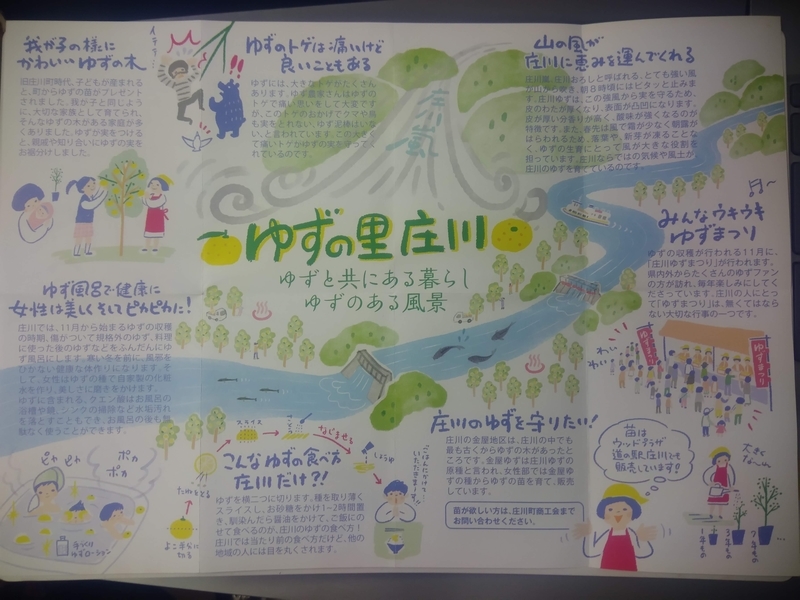 我が子の様に
かわいいゆずの木
旧庄川町時代、子どもが産まれる
と、町からゆずの苗がプレゼント
されました。我が子と同じよう
に、大切な家族として育てられ、
そんなゆずの木がある家庭が多
くありました。ゆずが実をつける
と、親戚や知り合いにゆずの実を
お裾分けしました。
イテテ…
ゆずのトゲは痛いけど
良いこともある
ゆずには、大きなトゲがたくさん
あります。ゆず農家さんはゆずの
トゲで痛い思いをして大変です
が、このトゲのおかげでクマや鳥
も実をとれない、ゆず泥棒はいな
い、と言われています。この大き
くて痛いトゲがゆずの実を守ってく
れているのです。
庄川嵐
山の風が
庄川に恵みを運んでくれる
庄川嵐、庄川おろしと呼ばれる、とても強い風
が山から吹き、朝8時頃にはピタッと止みま
す。庄川ゆずは、この強風から実を守るため、
皮のわたが厚くなり、表面が凸凹になります。
皮が厚い分香りが高く、酸味が強くなるのが
特徴です。また、春先は風で霜が少なく朝露が
はらわれるため、葉芽や、新芽が凍ることな
く、ゆずの生育にとって風が大きな役割を
担っています。庄川ならではの気候や風土が、
庄川のゆずを育てているのです。
ゆずの里庄川
ゆずと共にある暮らし
ゆずのある風景
みんなウキウキ
ゆずまつり
ゆずの収穫が行われる11月に、
「庄川ゆずまつり」が行われます。
県内外からたくさんのゆずファン
の方が訪れ、毎年楽しみにしてく
ださっています。庄川の人にとっ
て「ゆずまつり」は、無くてはなら
ない大切な行事の一つです。
わい
わい
ゆずまつり
ゆずまつり
ゆず風呂で健康に
女性は美しくそしてピカピカに!
庄川では、11月から始まるゆずの収穫
の時期、傷がついて規格外のゆず、料理
に使った後のゆずなどをふんだんにゆ
ず風呂にします。寒い冬を前に、風邪を
ひかない健康な体作りになります。そ
して、女性はゆずの種で自家製の化粧
水を作り、美しさに磨きをかけます。
ゆずに含まれる、クエン酸はお風呂の
浴槽や鏡、シンクの掃除など水垢汚れ
を落とすこともでき、お風呂の後も無
駄なく使うことができます。
ピカ
ピカ
ポカ
ポカ
手づくり
ゆずローション
たねをとる
よこ半分に
切る
スライス
なじませる
しょうゆ
こんなゆずの食べ方
庄川だけ?!
ゆずを横二つに切ります。種を取り薄く
スライスし、お砂糖をかけ1~2時間置
き、馴染んだら醤油をかけて、ご飯にの
せて食べるのが、庄川のゆずの食べ方!
庄川では当たり前の食べ方だけど、他の
地域の人には目を丸くされます。
ごはんにかけて
いただきます!
庄川のゆずを守りたい!
庄川の金屋地区は、庄川の中でも
最も古くからゆずの木があったと
ころです。金屋ゆずは庄川ゆずの
原種と言われ、女性部では金屋ゆ
ずの種からゆずの苗を育て、販売
しています。
苗が欲しい方は、庄川町商工会まで
お問い合わせください。
苗は
ウッドプラザ
道の駅庄川で
販売しています!!
大きく
な~れ
1年もの